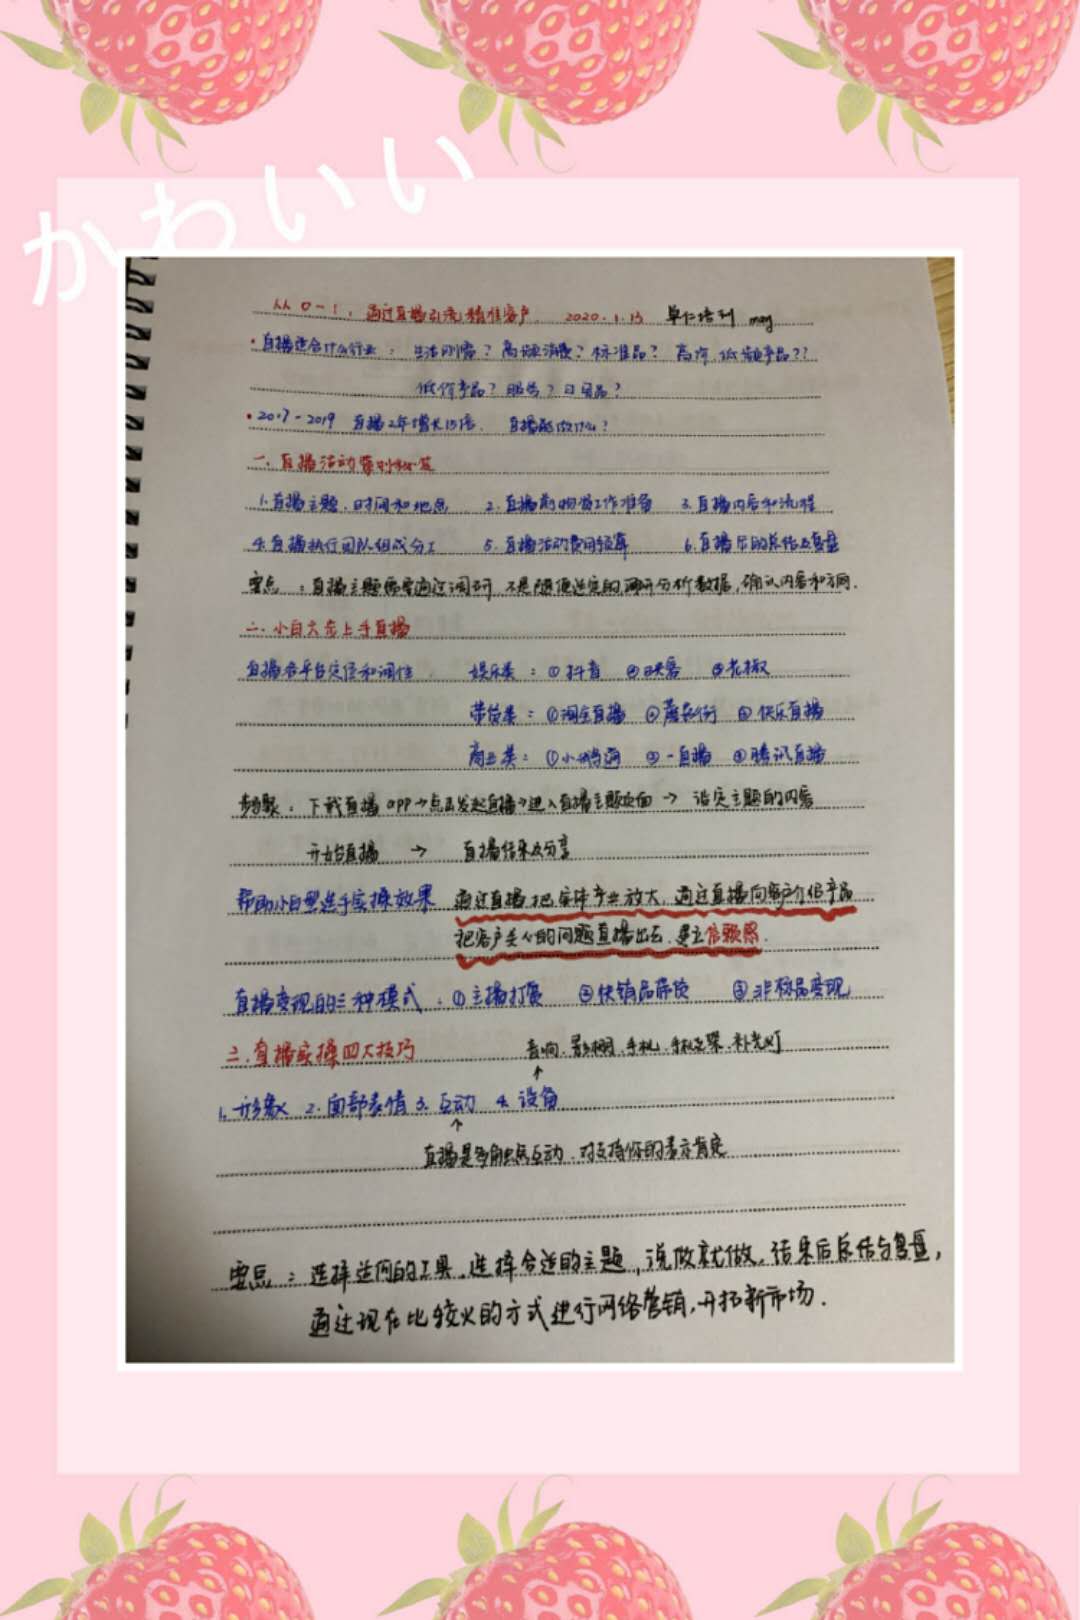 かわいい
从0-1，通过直播引流精准客户 2020.1.13 单仁培训 may
·直播适合什么行业：生活刚需？高频消费？标准品？高价、低频产品？？
低价产品？服务？日用品？
·2017-2019 直播2年增长15倍. 直播能做什么？
一、直播活动策划
1.直播主题、时间和地点 2.直播前物资工作准备 3.直播内容和流程
4.直播执行团队组成分工 5.直播活动费用预算 6.直播后的总结及复盘
要点：直播主题需要通过调研，不是随便选定的，调研分析数据，确认内容和方向.
二、小白六步上手直播
直播各平台定位和调性 娱乐类：①抖音 ②映客 ③花椒
带货类：①淘宝直播 ②蘑菇街 ③快乐直播
商业类：①小鹅通 ②一直播 ③腾讯直播
步骤：下载直播app→点击发起直播→进入直播主题页面→设定主题的内容
开始直播 → 直播结束及分享
帮助小白型选手实操效果 通过直播把实体产业放大，通过直播向客户介绍产品
把客户关心的问题直播出去，建立信赖感.
直播变现的三种模式：①主播打赏 ②快销品带货 ③非标品变现
三、直播实操四大技巧
音响、手机、手机支架、补光灯
↑
1.形象 2.面部表情 3.互动 4.设备
↑
直播是多触点互动，对支持你的表示肯定
要点：选择适网的工具，选择合适的主题，说做就做，结果后总结与复盘，
通过现在比较火的方式进行网络营销，开拓新市场.